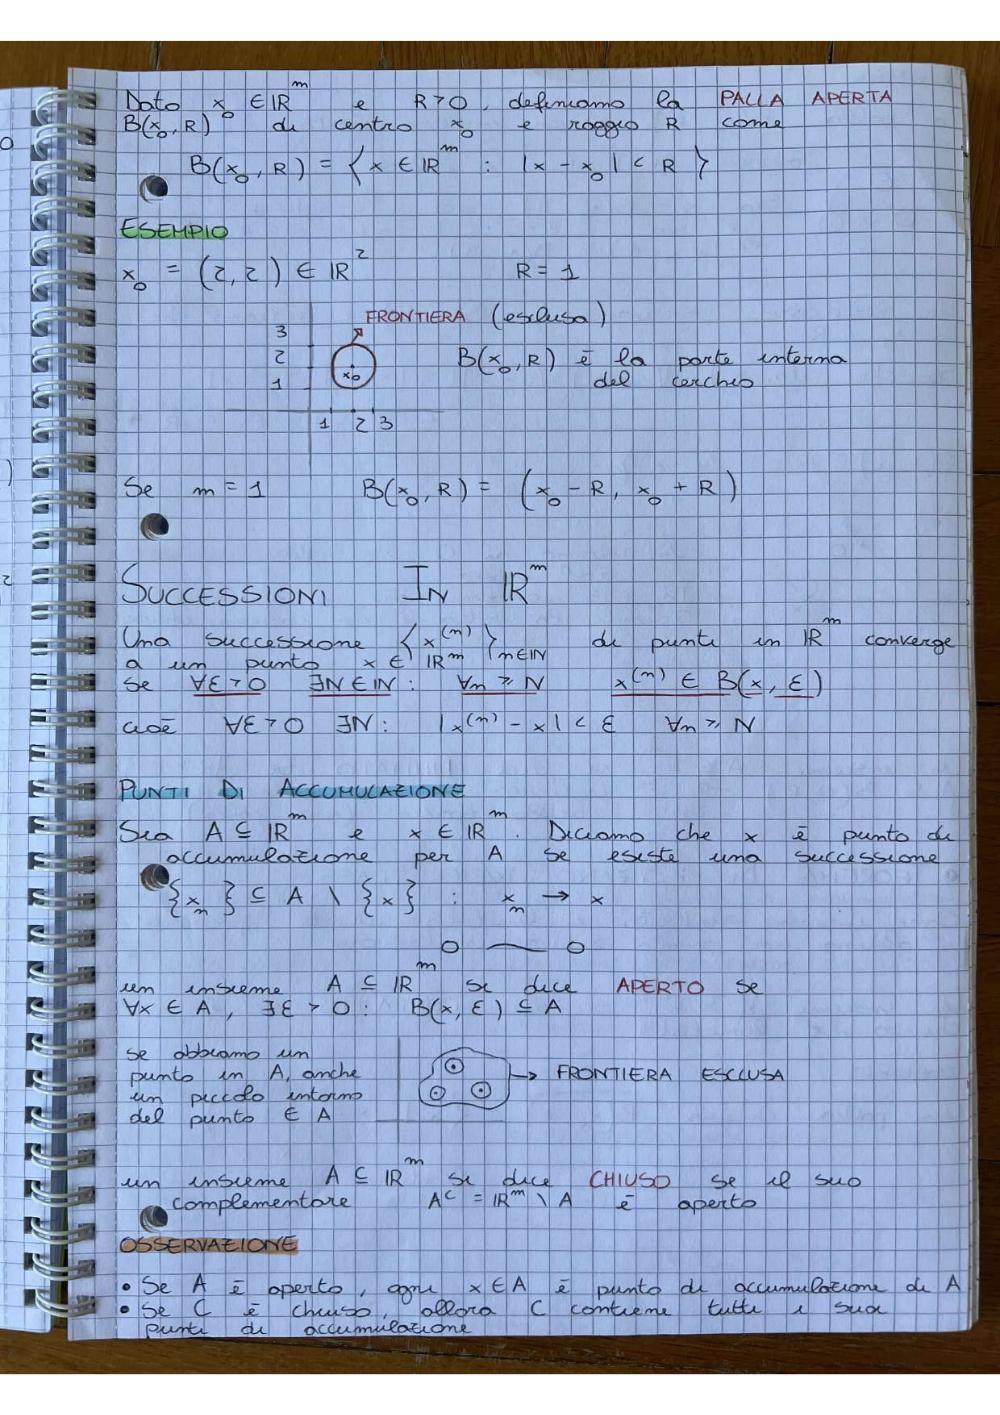 Dato x₀ ∈ ℝᵐ e R > 0, definiamo la PALLA APERTA
B(x₀, R) di centro x₀ e raggio R come
B(x₀, R) = { x ∈ ℝᵐ : |x - x₀| < R }
ESEMPIO
x₀ = (2, 2) ∈ ℝ² R = 1
FRONTIERA (esclusa)
3
2
1
x₀
B(x₀, R) è la parte interna
del cerchio
1 2 3
Se m = 1 B(x₀, R) = (x₀ - R, x₀ + R)
SUCCESSIONI IN ℝᵐ
Una successione {x⁽ⁿ⁾}ₙ∈ℕ di punti in ℝᵐ converge
a un punto x ∈ ℝᵐ
se ∀ε > 0 ∃N ∈ ℕ : ∀n ≥ N x⁽ⁿ⁾ ∈ B(x, ε)
cioè ∀ε > 0 ∃N : |x⁽ⁿ⁾ - x| < ε ∀n ≥ N
PUNTI DI ACCUMULAZIONE
Sia A ⊆ ℝᵐ e x ∈ ℝᵐ. Diciamo che x è punto di
accumulazione per A se esiste una successione
{xₙ} ⊆ A \ {x} : xₙ → x
un insieme A ⊆ ℝᵐ si dice APERTO se
∀x ∈ A, ∃ε > 0 : B(x, ε) ⊆ A
se abbiamo un
punto in A, anche
un piccolo intorno
del punto ∈ A
→ FRONTIERA ESCLUSA
un insieme A ⊆ ℝᵐ si dice CHIUSO se il suo
complementare Aᶜ = ℝᵐ \ A è aperto
OSSERVAZIONE
• Se A è aperto, ogni x ∈ A è punto di accumulazione di A
• Se C è chiuso, allora C contiene tutti i suoi
punti di accumulazione